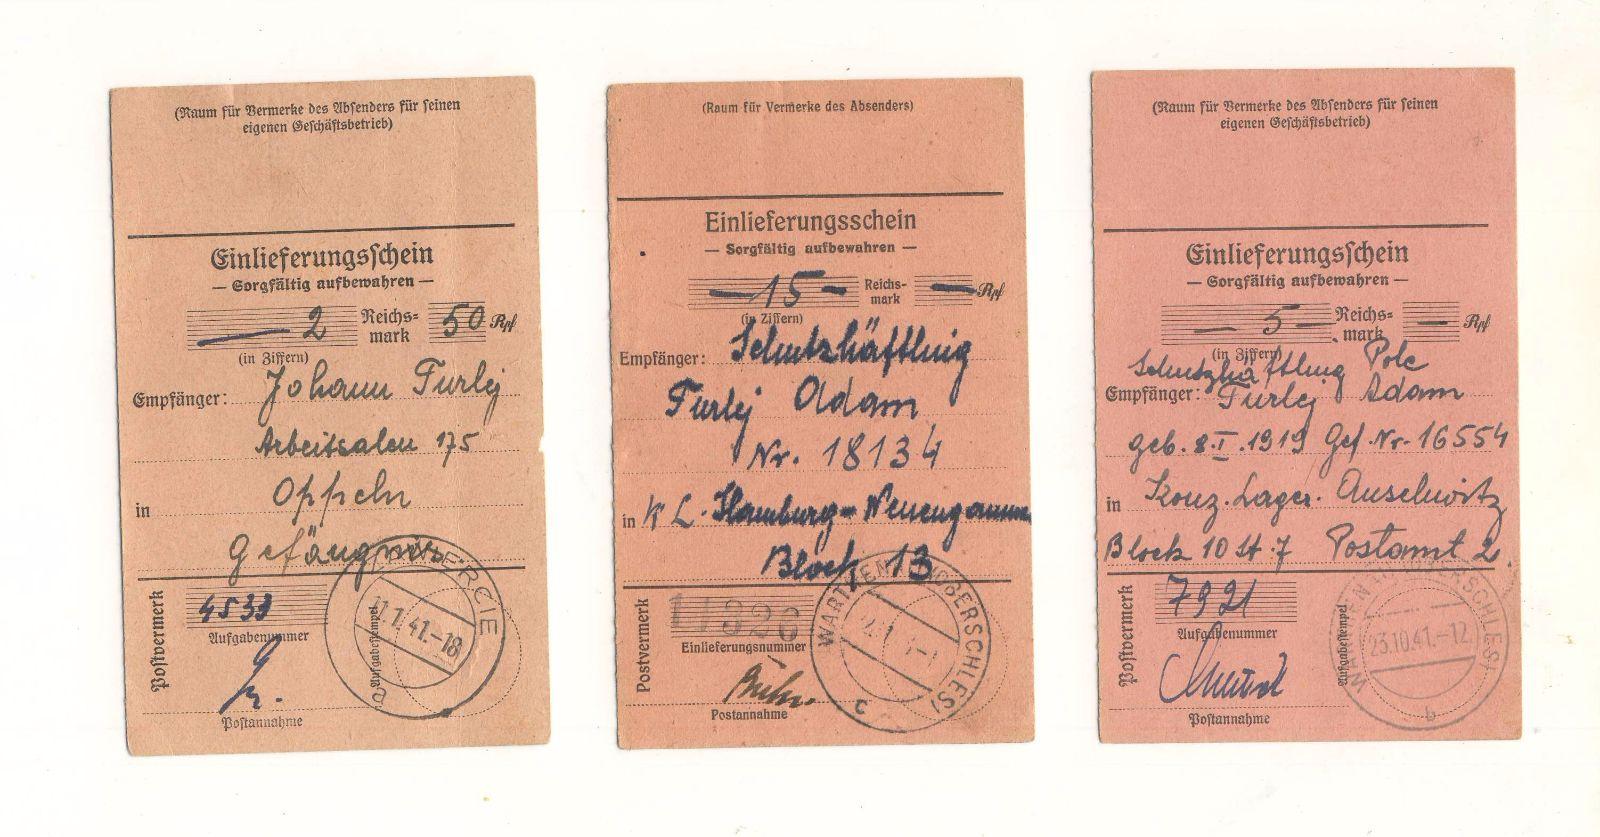 (Raum für Vermerke des Absenders für seinen
eigenen Geschäftsbetrieb)
Einlieferungsschein
— Sorgfältig aufbewahren —
— 2 Reichs-
mark 50 Rpf
(in Ziffern)
Empfänger: Johann Turlej
Arbeitsalen 175
in Oppeln
Gefängnis
Postvermerk
4533
Aufgabenummer
Aufgabestempel
11.1.41.-18
a
Postannahme
(Raum für Vermerke des Absenders)
Einlieferungsschein
— Sorgfältig aufbewahren —
— 15 — Reichs-
mark — Rpf
(in Ziffern)
Empfänger: Schutzhäftling
Turlej Adam
Nr. 18134
in K L. Hamburg-Neuengamme
Block 13
Postvermerk
11326
Einlieferungsnummer
WARTHENAU (OBERSCHLES)
c
Postannahme
(Raum für Vermerke des Absenders für seinen
eigenen Geschäftsbetrieb)
Einlieferungsschein
— Sorgfältig aufbewahren —
— 5 — Reichs-
mark — Rpf
(in Ziffern)
Schutzhäftling Pole
Empfänger: Turlej Adam
geb. 8.I.1919 Gef. Nr. 16554
in Konz. Lager. Auschwitz
Block 10 St. 7 Postamt 2.
Postvermerk
7921
Aufgabenummer
Aufgabestempel
WARTHENAU (OBERSCHLES)
23.10.41.-12
b
Postannahme